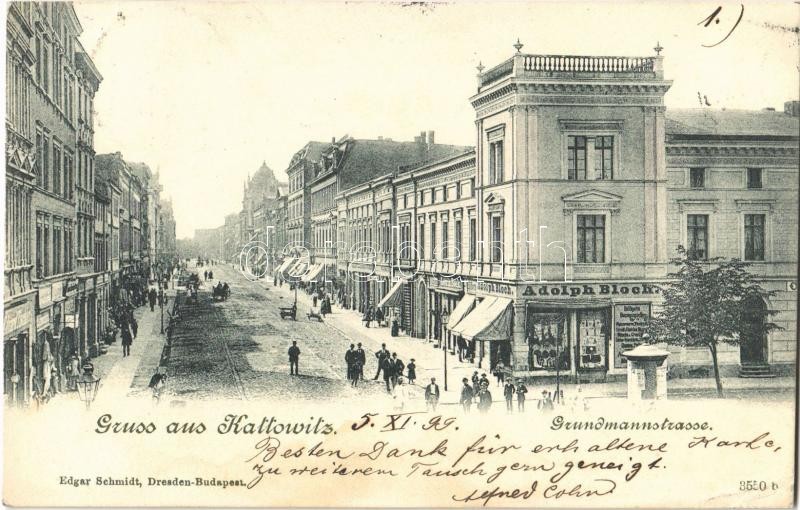 1.)
Adolph Bloch.
Adolph Bloch.
Gruss aus Kattowitz. 5. XI. 99. Grundmannstrasse.
Besten Dank für erhaltene Karte,
zu weiterem Tausch gern geneigt.
Alfred Cohn
Edgar Schmidt, Dresden-Budapest. 3550 b
darabanth